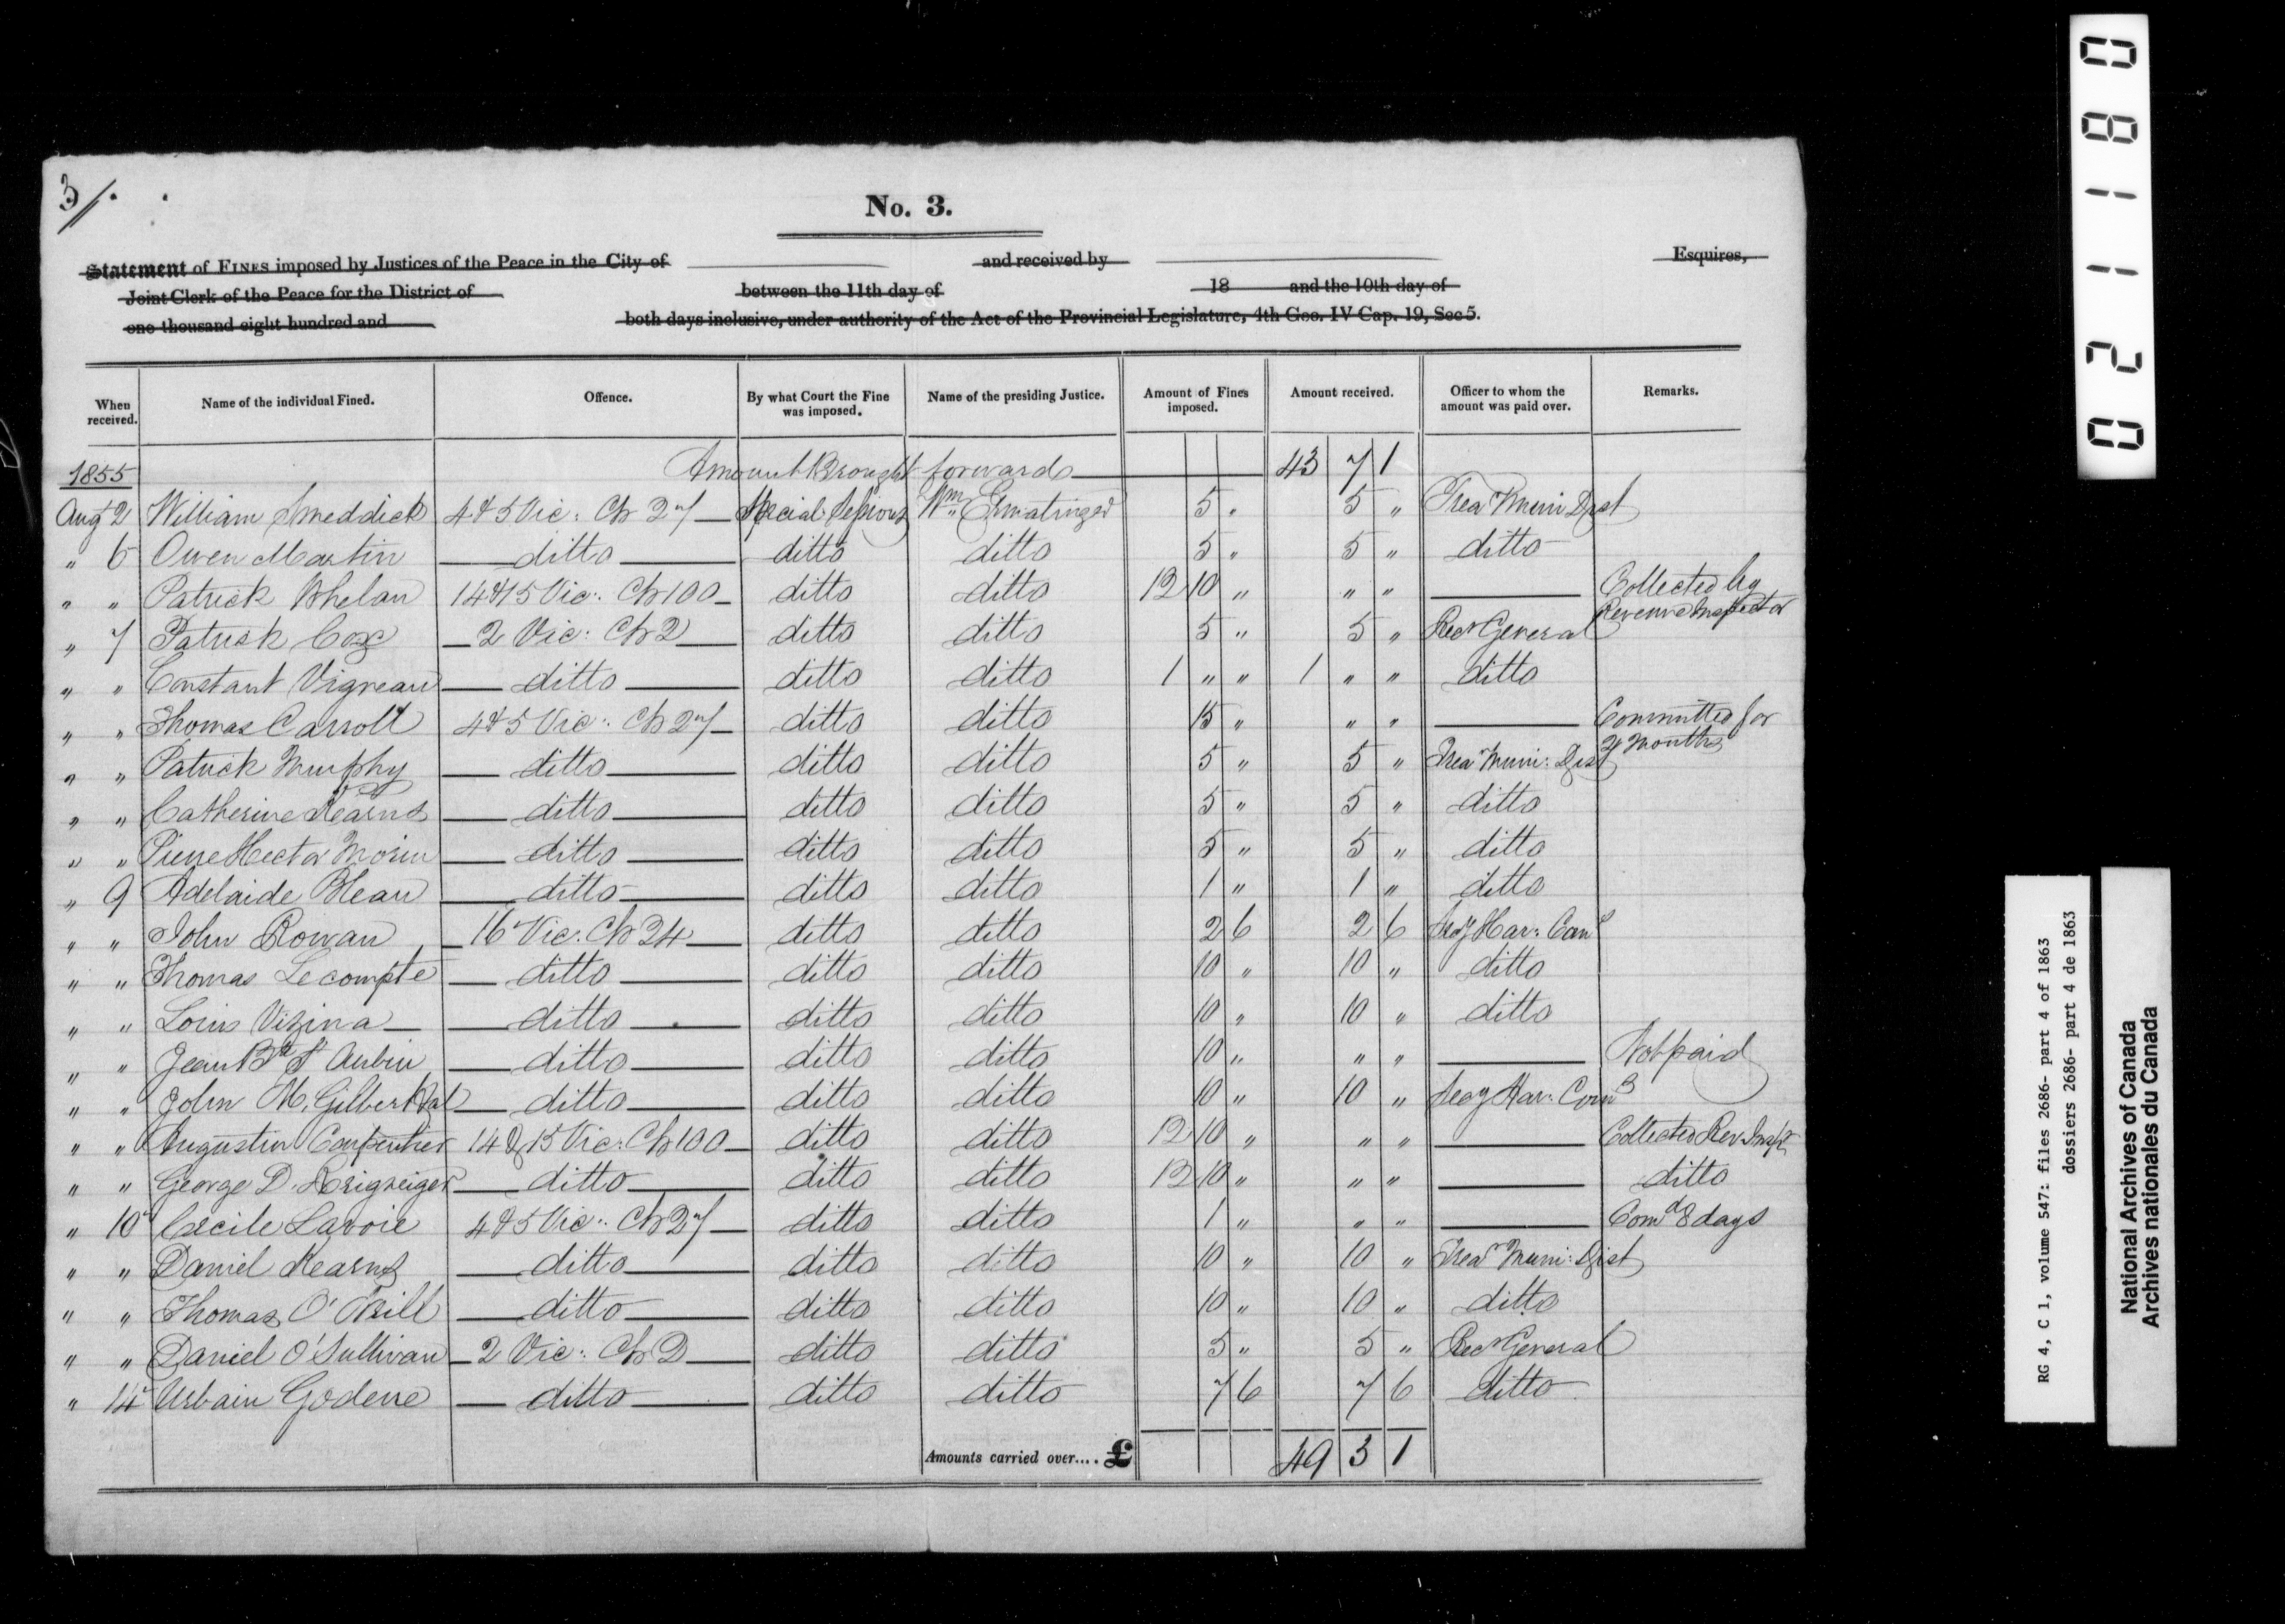 3/.
No. 3.
Statement of FINES imposed by Justices of the Peace in the City of and received by Esquires,
Joint Clerk of the Peace for the District of between the 11th day of 18 and the 10th day of
one thousand eight hundred and both days inclusive, under authority of the Act of the Provincial Legislature, 4th Geo. IV Cap. 19, Sec 5.
When received. Name of the individual Fined. Offence. By what Court the Fine was imposed. Name of the presiding Justice. Amount of Fines imposed. Amount received. Officer to whom the amount was paid over. Remarks.
1855 Amount Brought forward 43 7 1
Augt 2 William Smeddick 4 & 5 Vic: Ch 27 Special Sessions Wm Ermatinger 5 " 5 " Treasr Muni Dist
" 6 Owen Martin ditto ditto ditto 5 " 5 " ditto
" " Patrick Whelan 14 & 15 Vic: Ch 100 ditto ditto 12 10 " " " Collected by Revenue Inspector
" 7 Patrick Cox 2 Vic: Ch 2 ditto ditto 5 " 5 " Recr General
" " Constant Vigneau ditto ditto ditto 1 " " 1 " " ditto
" " Thomas Carroll 4 & 5 Vic: Ch 27 ditto ditto 15 " " " Committed for 2 Months
" " Patrick Murphy ditto ditto ditto 5 " 5 " Trear Muni: Dist
" " Catherine Kearns ditto ditto ditto 5 " 5 " ditto
" " Pierre Hector Morin ditto ditto ditto 5 " 5 " ditto
" 9 Adelaide Bleau ditto ditto ditto 1 " 1 " ditto
" " John Rowan 16 Vic: Ch 24 ditto ditto 2 6 2 6 Secy Har: Com
" " Thomas Lecompte ditto ditto ditto 10 " 10 " ditto
" " Louis Vizina ditto ditto ditto 10 " 10 " ditto
" " Jean Bte St Aubin ditto ditto ditto 10 " " " Not paid
" " John M. Gilbert ditto ditto ditto 10 " 10 " Secy Har: Coms
" " Augustin Carpentier 14 & 15 Vic: Ch 100 ditto ditto 12 10 " " " Collected Rev. Inspr
" " George D. ditto ditto ditto 12 10 " " " ditto
" 10 Cecile Lavoie 4 & 5 Vic: Ch 27 ditto ditto 1 " " " Comd 8 days
" " Daniel Kearns ditto ditto ditto 10 " 10 " Trear Muni: Dist
" " Thomas O'Neill ditto ditto ditto 10 " 10 " ditto
" " Daniel O'Sullivan 2 Vic: Ch 2 ditto ditto 5 " 5 " Recr General
" 14 Urbain Goderre ditto ditto ditto 7 6 7 6 ditto
Amounts carried over.... £ 49 3 1
021180
RG 4, C 1, volume 547: files 2686- part 4 of 1863
dossiers 2686- part 4 de 1863
National Archives of Canada
Archives nationales du Canada